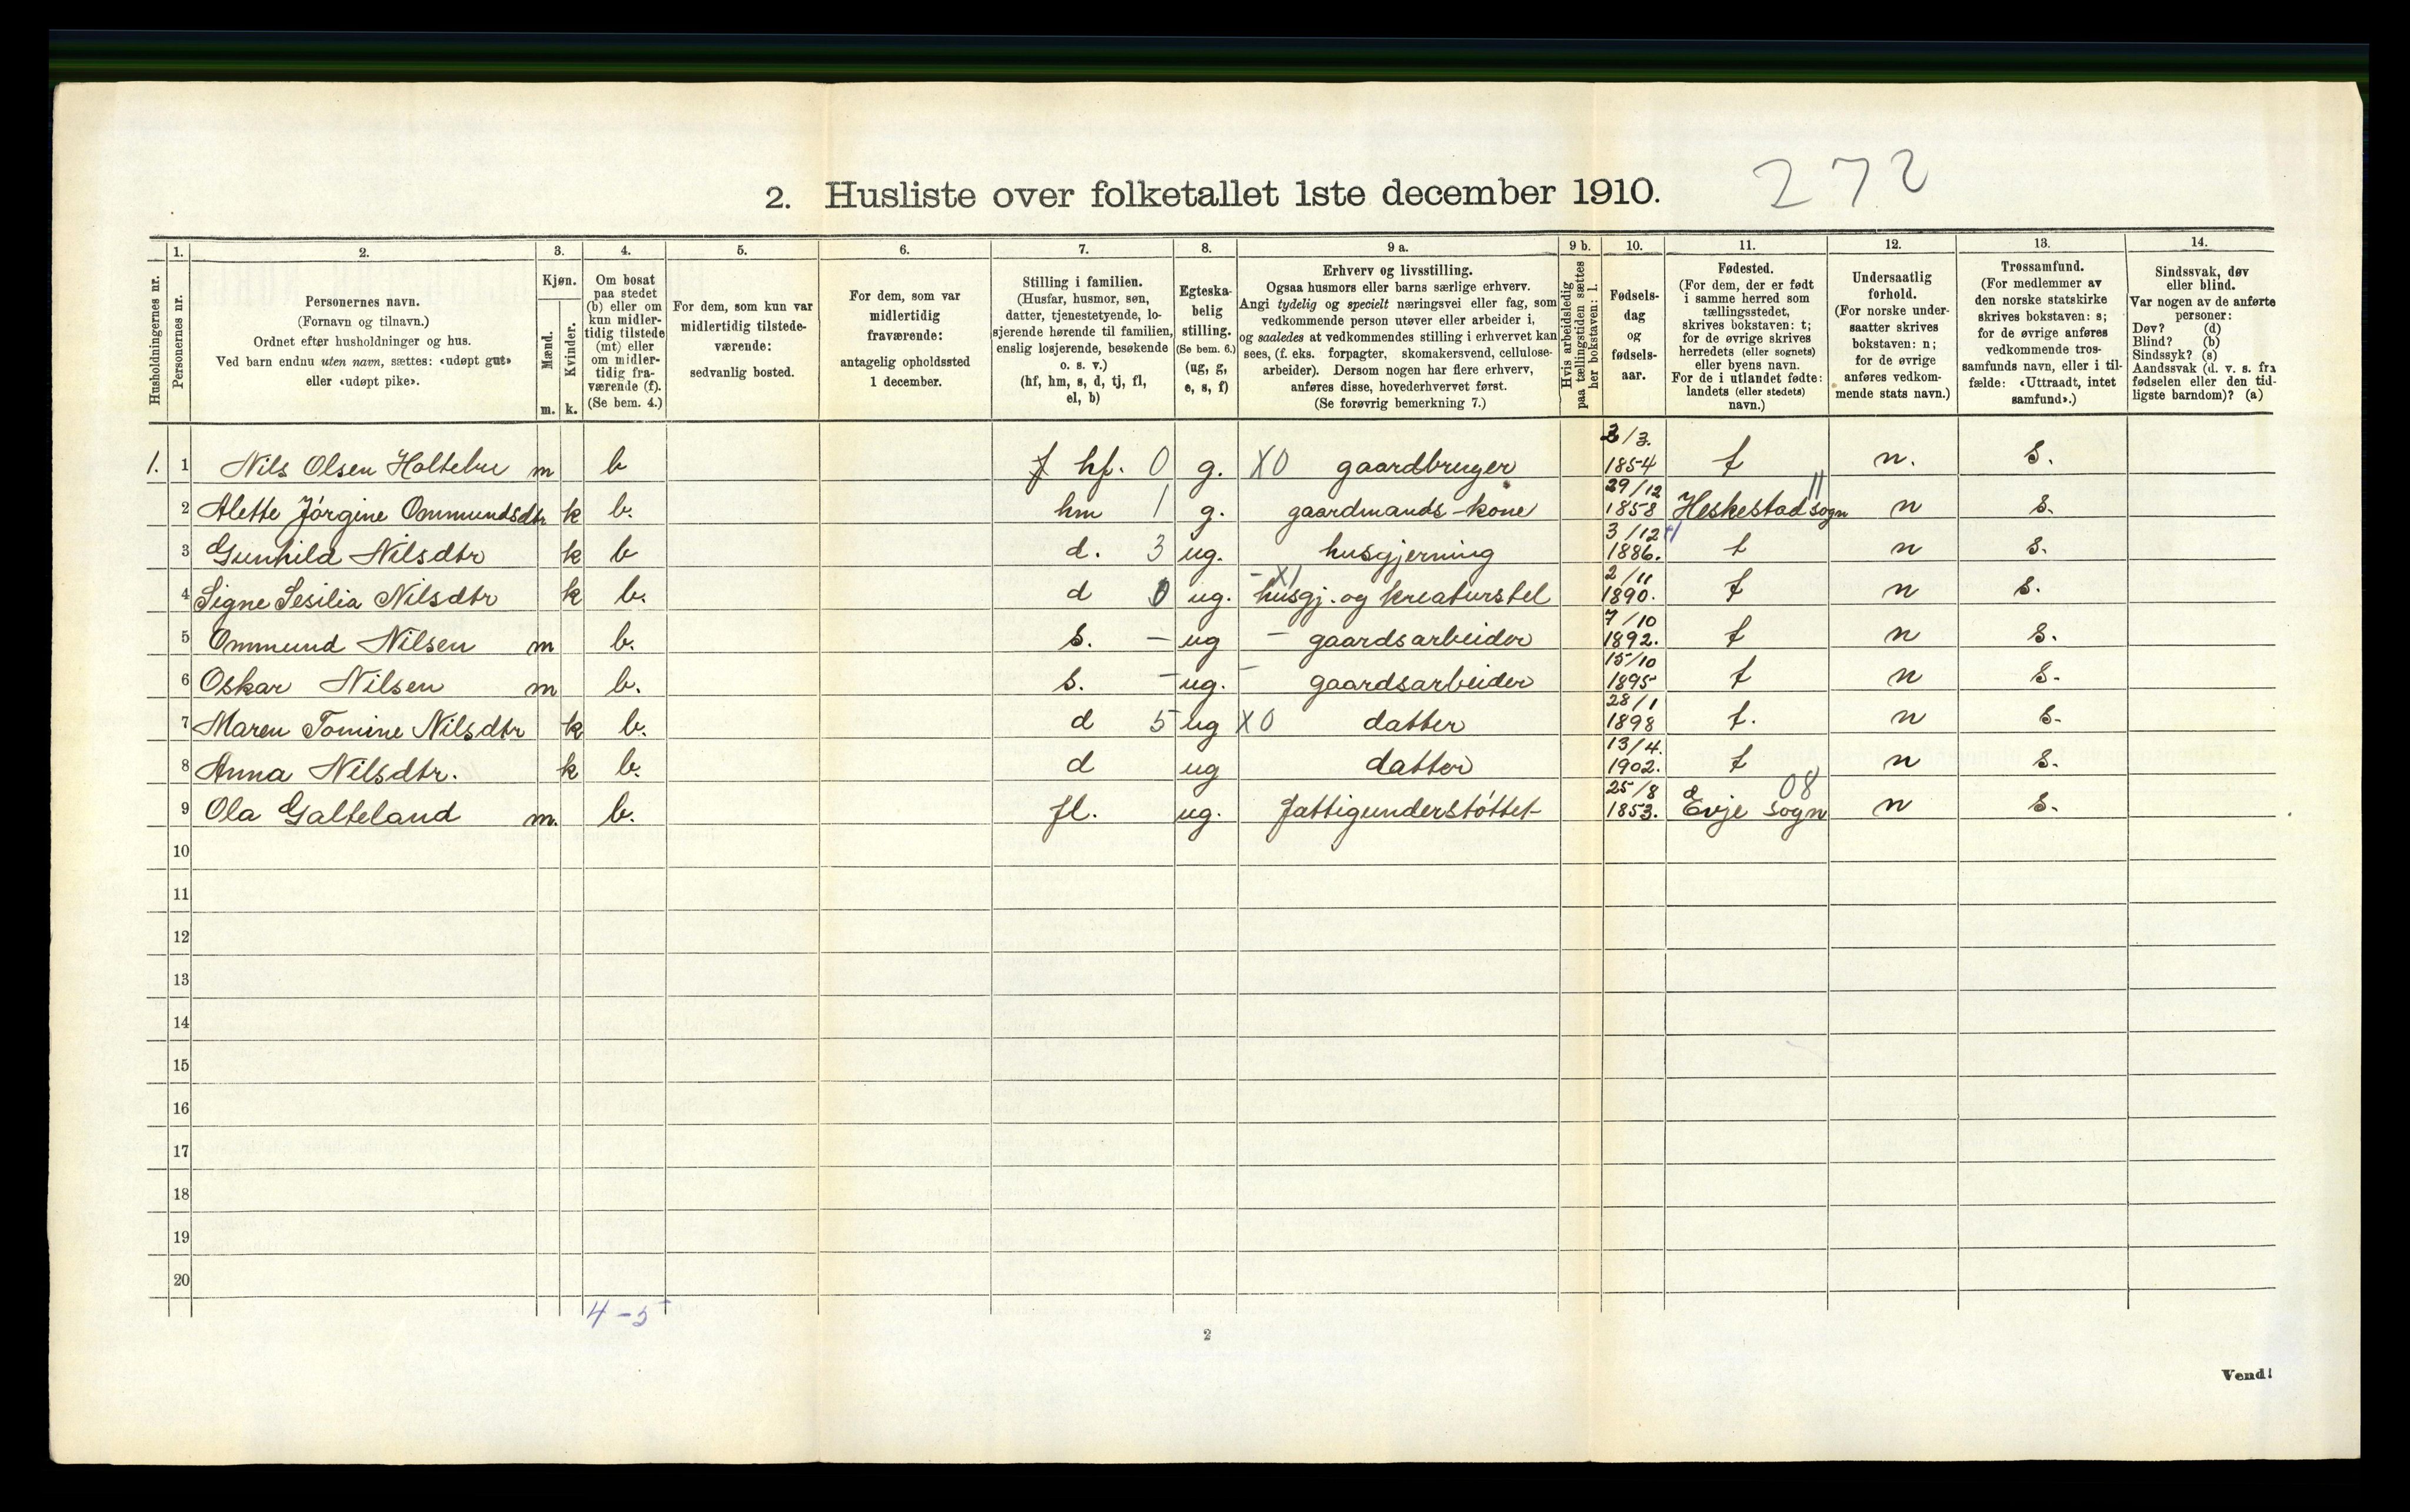 272
2. Husliste over folketallet 1ste december 1910.
Husholdningernes nr.
1. Personernes nr.
2. Personernes navn.
(Fornavn og tilnavn.)
Ordnet efter husholdninger og hus.
Ved barn endnu uten navn, sættes: «udøpt gut»
eller «udøpt pike».
3. Kjøn.
Mænd. m.
Kvinder. k.
4. Om bosat
paa stedet
(b) eller om
kun midler-
tidig tilstede
(mt) eller
om midler-
tidig fra-
værende (f).
(Se bem. 4.)
5. For dem, som kun var
midlertidig tilstede-
værende:
sedvanlig bosted.
6. For dem, som var
midlertidig
fraværende:
antagelig opholdssted
1 december.
7. Stilling i familien.
(Husfar, husmor, søn,
datter, tjenestetyende, lo-
sjerende hørende til familien,
enslig losjerende, besøkende
o. s. v.)
(hf, hm, s, d, tj, fl,
el, b)
8. Egteska-
belig
stilling.
(Se bem. 6.)
(ug, g,
e, s, f)
9 a. Erhverv og livsstilling.
Ogsaa husmors eller barns særlige erhverv.
Angi tydelig og specielt næringsvei eller fag, som
vedkommende person utøver eller arbeider i,
og saaledes at vedkommendes stilling i erhvervet kan
sees, (f. eks. forpagter, skomakersvend, cellulose-
arbeider). Dersom nogen har flere erhverv,
anføres disse, hovederhvervet først.
(Se forøvrig bemerkning 7.)
9 b. Hvis arbeidsledig
paa tællingstiden sættes
her bokstaven: l.
10. Fødsels-
dag
og
fødsels-
aar.
11. Fødested.
(For dem, der er født
i samme herred som
tællingsstedet,
skrives bokstaven: t;
for de øvrige skrives
herredets (eller sognets)
eller byens navn.
For de i utlandet fødte:
landets (eller stedets)
navn.)
12. Undersaatlig
forhold.
(For norske under-
saatter skrives
bokstaven: n;
for de øvrige
anføres vedkom-
mende stats navn.)
13. Trossamfund.
(For medlemmer av
den norske statskirke
skrives bokstaven: s;
for de øvrige anføres
vedkommende tros-
samfunds navn, eller i til-
fælde: «Uttraadt, intet
samfund».)
14. Sindssvak, døv
eller blind.
Var nogen av de anførte
personer:
Døv? (d)
Blind? (b)
Sindssyk? (s)
Aandssvak (d. v. s. fra
fødselen eller den tid-
ligste barndom)? (a)
1. 1 Nils Olsen Holtebu m b hf. 0 g. X0 gaardbruger 3/3. 1854 t n. s.
2 Alette Jørgine Ommundsdtr k b. hm 1 g. gaardmands-kone 29/12 1858 Heskestad sogn 11 n s.
3 Gunhild Nilsdtr k b d. 3 ug. husgjerning 3/12 1886. t n s.
4 Signe Sesilia Nilsdtr k b. d 0 ug. -X1 husgj. og kreaturstel 2/11 1890. t n s.
5 Ommund Nilsen m b. s. - ug - gaardsarbeider 7/10 1892. t n s.
6 Oskar Nilsen m b. s. - ug. - gaardsarbeider 15/10 1895 t n s.
7 Maren Tomine Nilsdtr k b. d 5 ug X0 datter 28/1 1898 t. n s.
8 Anna Nilsdtr. k b. d ug datter 13/4. 1902. t n s.
9 Ola Galteland m. b. fl. ug. fattigunderstøttet 25/8 1853. Evje sogn 08 n s.
10
11
12
13
14
15
16
17
18
19
20
4-5
2
Vend!